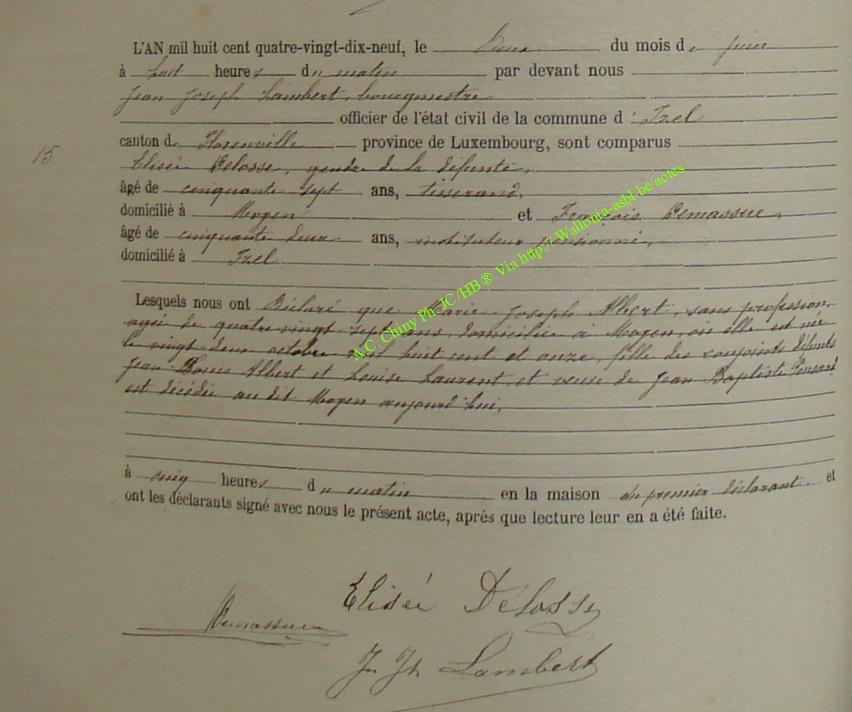 L'AN mil huit cent quatre-vingt-dix-neuf, le deux du mois de juin
à huit heures du matin par devant nous
Jean Joseph Lambert, bourgmestre
officier de l'état civil de la commune d'Izel
canton de Florenville province de Luxembourg, sont comparus
15
Elisée Delosse, gendre de la défunte,
âgé de cinquante sept ans, tisserand,
domicilié à Moyen et François Demassue,
âgé de cinquante deux ans, instituteur pensionné,
domicilié à Izel
Lesquels nous ont déclaré que Marie Joseph Albert, sans profession,
agée de quatre vingt sept ans, domiciliée à Moyen, où elle est née
le vingt deux octobre mil huit cent et onze, fille des conjoints défunts
Jean Louis Albert et Louise Laurent, et veuve de Jean Baptiste
est décédée au dit Moyen aujourd'hui,
à cinq heures du matin en la maison du premier déclarant et
ont les déclarants signé avec nous le présent acte, après que lecture leur en a été faite.
Elisée Delosse
Demassue
Jn Jh Lambert
A.C. Chiny Ph JC/HB® Via http://Wallonia-asbl.be/actes